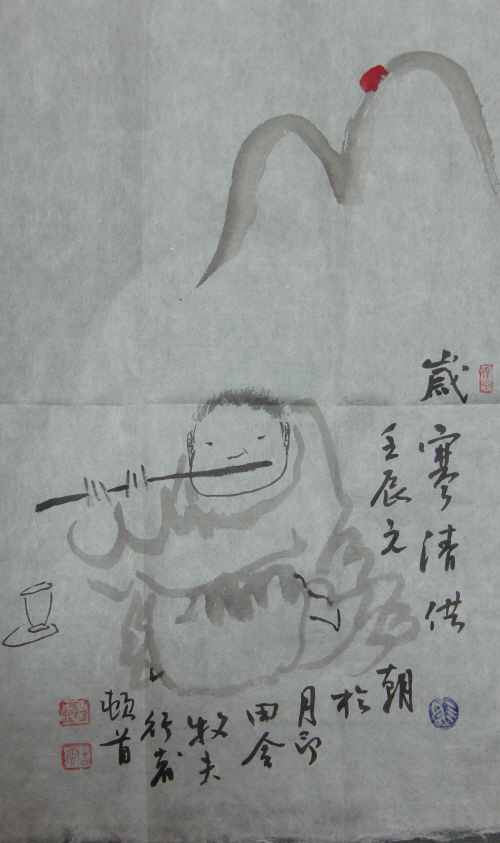 歲寒清供
壬辰元
朝
於
月印
田舍
牧夫
行者
頓首